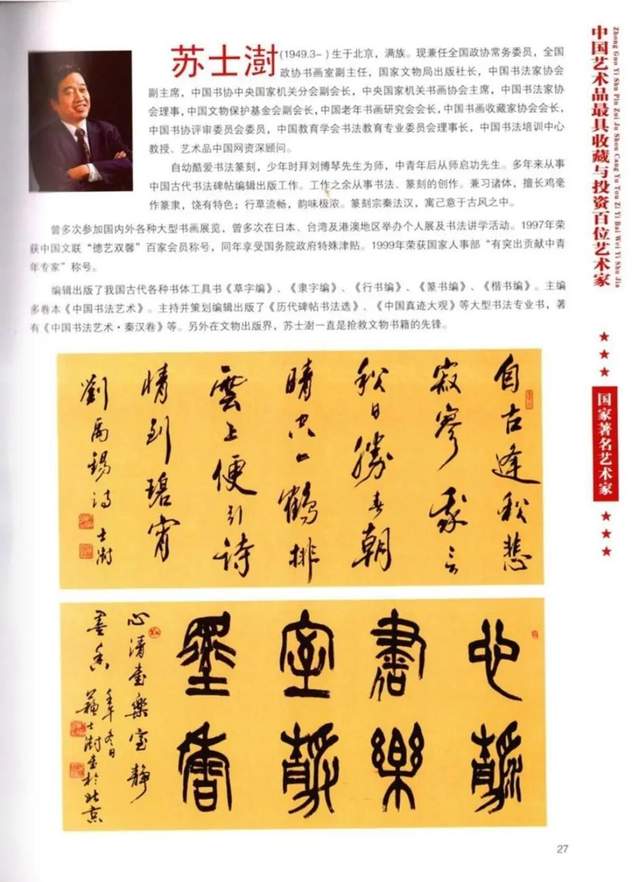 苏士澍(1949.3-)生于北京，满族。现兼任全国政协常务委员，全国
政协书画室副主任，国家文物局出版社长，中国书法家协会
副主席，中国书协中央国家机关分会副会长，中央国家机关书画协会主席，中国书法家协
会理事，中国文物保护基金会副会长，中国老年书画研究会会长，中国书画收藏家协会会长，
中国书协评审委员会委员，中国教育学会书法教育专业委员会理事长，中国书法培训中心
教授、艺术品中国网资深顾问。
自幼酷爱书法篆刻，少年时拜刘博琴先生为师，中青年后从师启功先生。多年来从事
中国古代书法碑帖编辑出版工作。工作之余从事书法、篆刻的创作。兼习诸体，擅长鸡毫
作篆隶，饶有特色；行草流畅，韵味极浓。篆刻宗秦法汉，寓己意于古风之中。
曾多次参加国内外各种大型书画展览，曾多次在日本、台湾及港澳地区举办个人展及书法讲学活动。1997年荣
获中国文联“德艺双馨”百家会员称号，同年享受国务院政府特殊津贴。1999年荣获国家人事部“有突出贡献中青
年专家”称号。
编辑出版了我国古代各种书体工具书《草字编》、《隶字编》、《行书编》、《篆书编》、《楷书编》。主编
多卷本《中国书法艺术》。主持并策划编辑出版了《历代碑帖书法选》、《中国真迹大观》等大型书法专业书，著
有《中国书法艺术·秦汉卷》等。另外在文物出版界，苏士澍一直是抢救文物书籍的先锋。
Zhong Guo Yi Shu Pin Zui Ju Shou Cang Yu Tou Zi Yi Bai Wei Yi Shu Jia
中国艺术品最具收藏与投资百位艺术家
国家著名艺术家
自古逢秋悲
寂寥我言
秋日勝春朝
晴空一鶴排
雲上便引詩
情到碧宵
劉禹錫詩 士澍
心清
書樂
室靜
墨香
心清書樂室靜
墨香 壬午冬日
蘇士澍書於北京
27